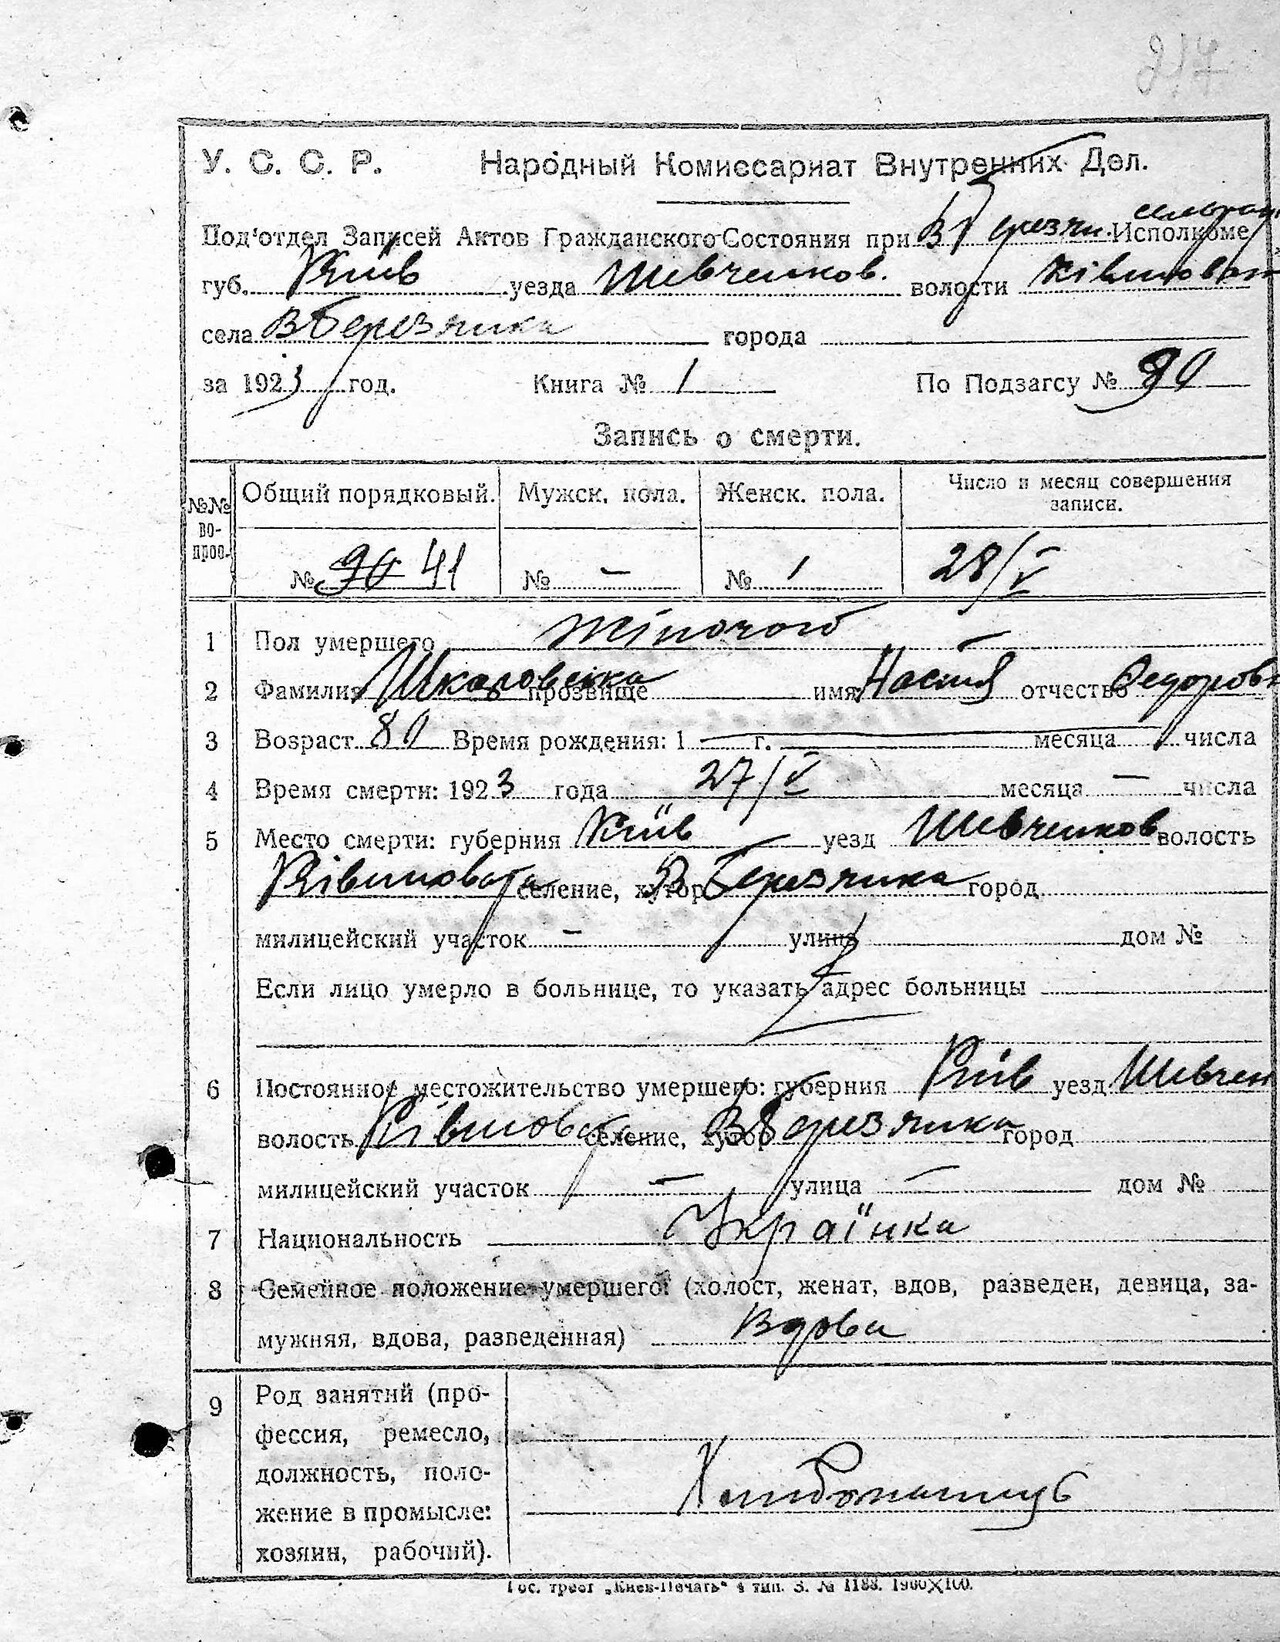 217
У. С. С. Р. Народный Комиссариат Внутренних Дел.
Под'отдел Записей Актов Гражданского Состояния при В Березян. сельрад. Исполкоме
губ. Київ уезда Шевченков. волости Ківшоват
села ВБерезянка города
за 1923 год. Книга № 1 По Подзагсу № 90
Запись о смерти.
№№ во- проо. Общий порядковый. Мужск. пола. Женск. пола. Число и месяц совершения записи.
№ 90 41 № – № 1 28/V
1 Пол умершего жіночого
2 Фамилия Шкаровська прозвище имя Настя отчество Федоровн
3 Возраст 80 Время рождения: 1 г. месяца числа
4 Время смерти: 1923 года 27/V месяца — числа
5 Место смерти: губерния Київ уезд Шевченков волость
Ківшовата селение, хутор ВБерезянка город
милицейский участок – улица дом №
Если лицо умерло в больнице, то указать адрес больницы
6 Постоянное местожительство умершего: губерния Київ уезд Шевчен
волость Ківшовата селение, хутор ВБерезянка город
милицейский участок — улица — дом №
7 Национальность Українка
8 Семейное положение умершего: (холост, женат, вдов, разведен, девица, за-
мужняя, вдова, разведенная) Вдова
9 Род занятий (про-
фессия, ремесло,
должность, поло-
жение в промысле:
хозяин, рабочий).
Хлибопашец
Гос. трест „Киев-Печать" 4 тип. З. № 1188. 1960X100.